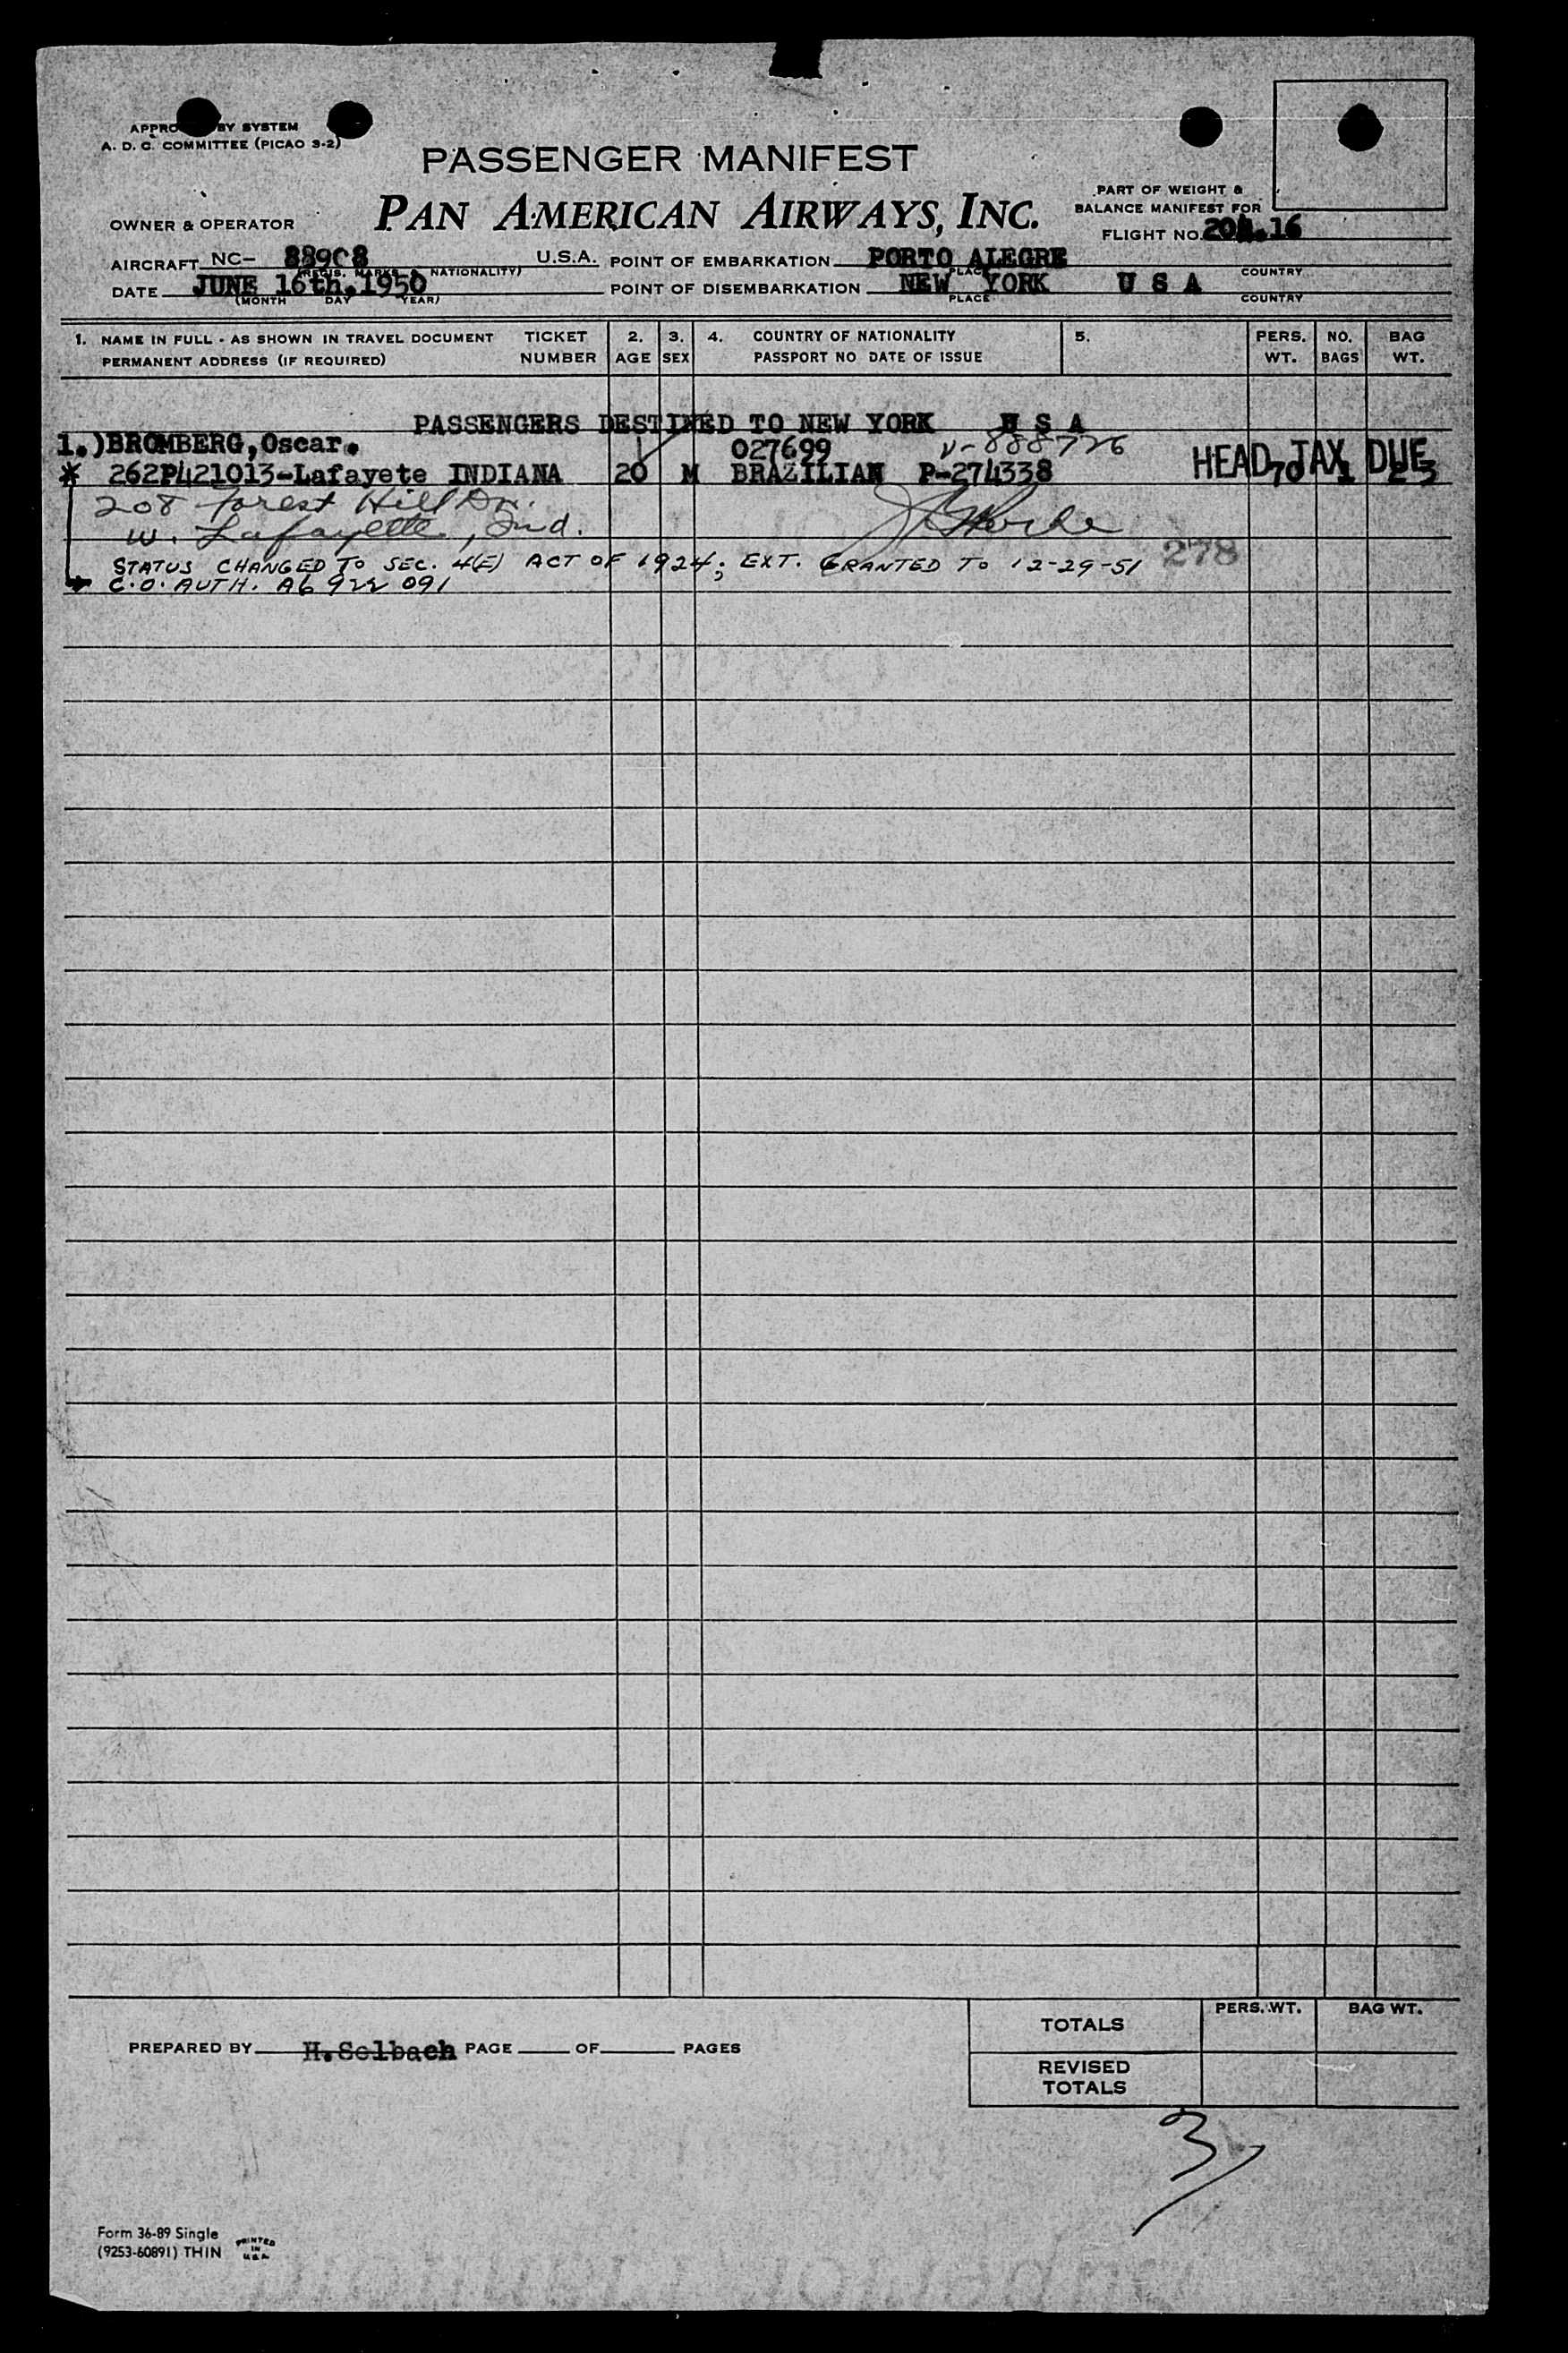 APPRO BY SYSTEM
A. D. C. COMMITTEE (PICAO 3-2)
PASSENGER MANIFEST
PAN AMERICAN AIRWAYS, INC.
OWNER & OPERATOR
PART OF WEIGHT &
BALANCE MANIFEST FOR
FLIGHT NO. 16
AIRCRAFT NC- 88908 U.S.A. POINT OF EMBARKATION PORTO ALEGRE
(REGIS. MARKS & NATIONALITY) PLACE COUNTRY
DATE JUNE 16th.1950 POINT OF DISEMBARKATION NEW YORK U S A
(MONTH DAY YEAR) PLACE COUNTRY
1. NAME IN FULL - AS SHOWN IN TRAVEL DOCUMENT TICKET 2. 3. 4. COUNTRY OF NATIONALITY 5. PERS. NO. BAG
PERMANENT ADDRESS (IF REQUIRED) NUMBER AGE SEX PASSPORT NO DATE OF ISSUE WT. BAGS WT.
PASSENGERS DESTINED TO NEW YORK U S A
1.)BROMBERG,Oscar. 027699 V-888726
* 262P421013-Lafayete INDIANA 20 M BRAZILIAN P-274338 HEAD TAX DUE 70 1 23
208 Forest Hill Dr.
W. Lafayette, Ind.
STATUS CHANGED TO SEC. 4(E) ACT OF 1924; EXT. GRANTED TO 12-29-51 278
C.O. AUTH. A6 922 091
TOTALS PERS. WT. BAG WT.
PREPARED BY H.Solbach PAGE OF PAGES
REVISED
TOTALS
3
Form 36-89 Single
(9253-60891) THIN
PRINTED
IN
U.S.A.